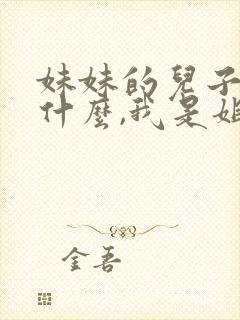 妹妹的兒子
什麼,我是姐
金吾